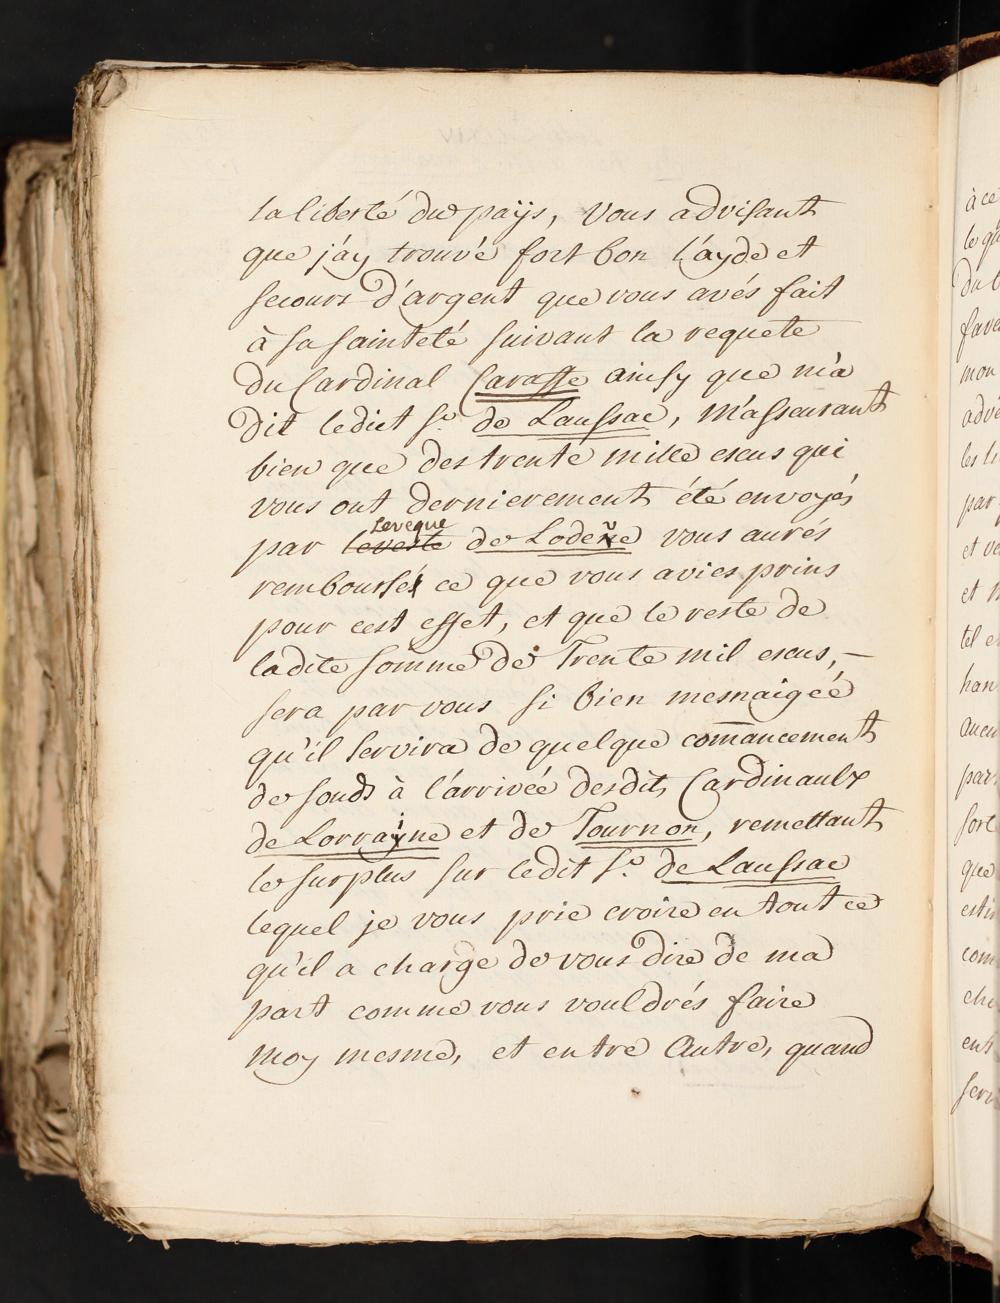 la liberté du païs, Vous advisant
que j'ay trouvé fort bon l'ayde et
secours d'argent que vous avés fait
à sa sainteté suivant la requete
du Cardinal Caraffe ainsy que m'a
dit ledict Sr. de Laussac, m'asseurant
bien que des trente mille escus qui
vous ont dernierement été envoyés
par Leveque de Lodeve vous aurés
remboursé ce que vous avies prins
pour cest effet, et que le reste de
ladite somme de Trente mil escus, –
sera par vous si bien mesnaigéé
qu'il servira de quelque comancement
de fonds à l'arrivée desdits Cardinaulx
de Lorraine et de Tournon, remettant
le surplus sur ledit Sr. de Laussac
lequel je vous prie croire en tout ce
qu'il a charge de vous dire de ma
part comme vous vouldrés faire
moy mesme, et entre Autre, quand
à ce